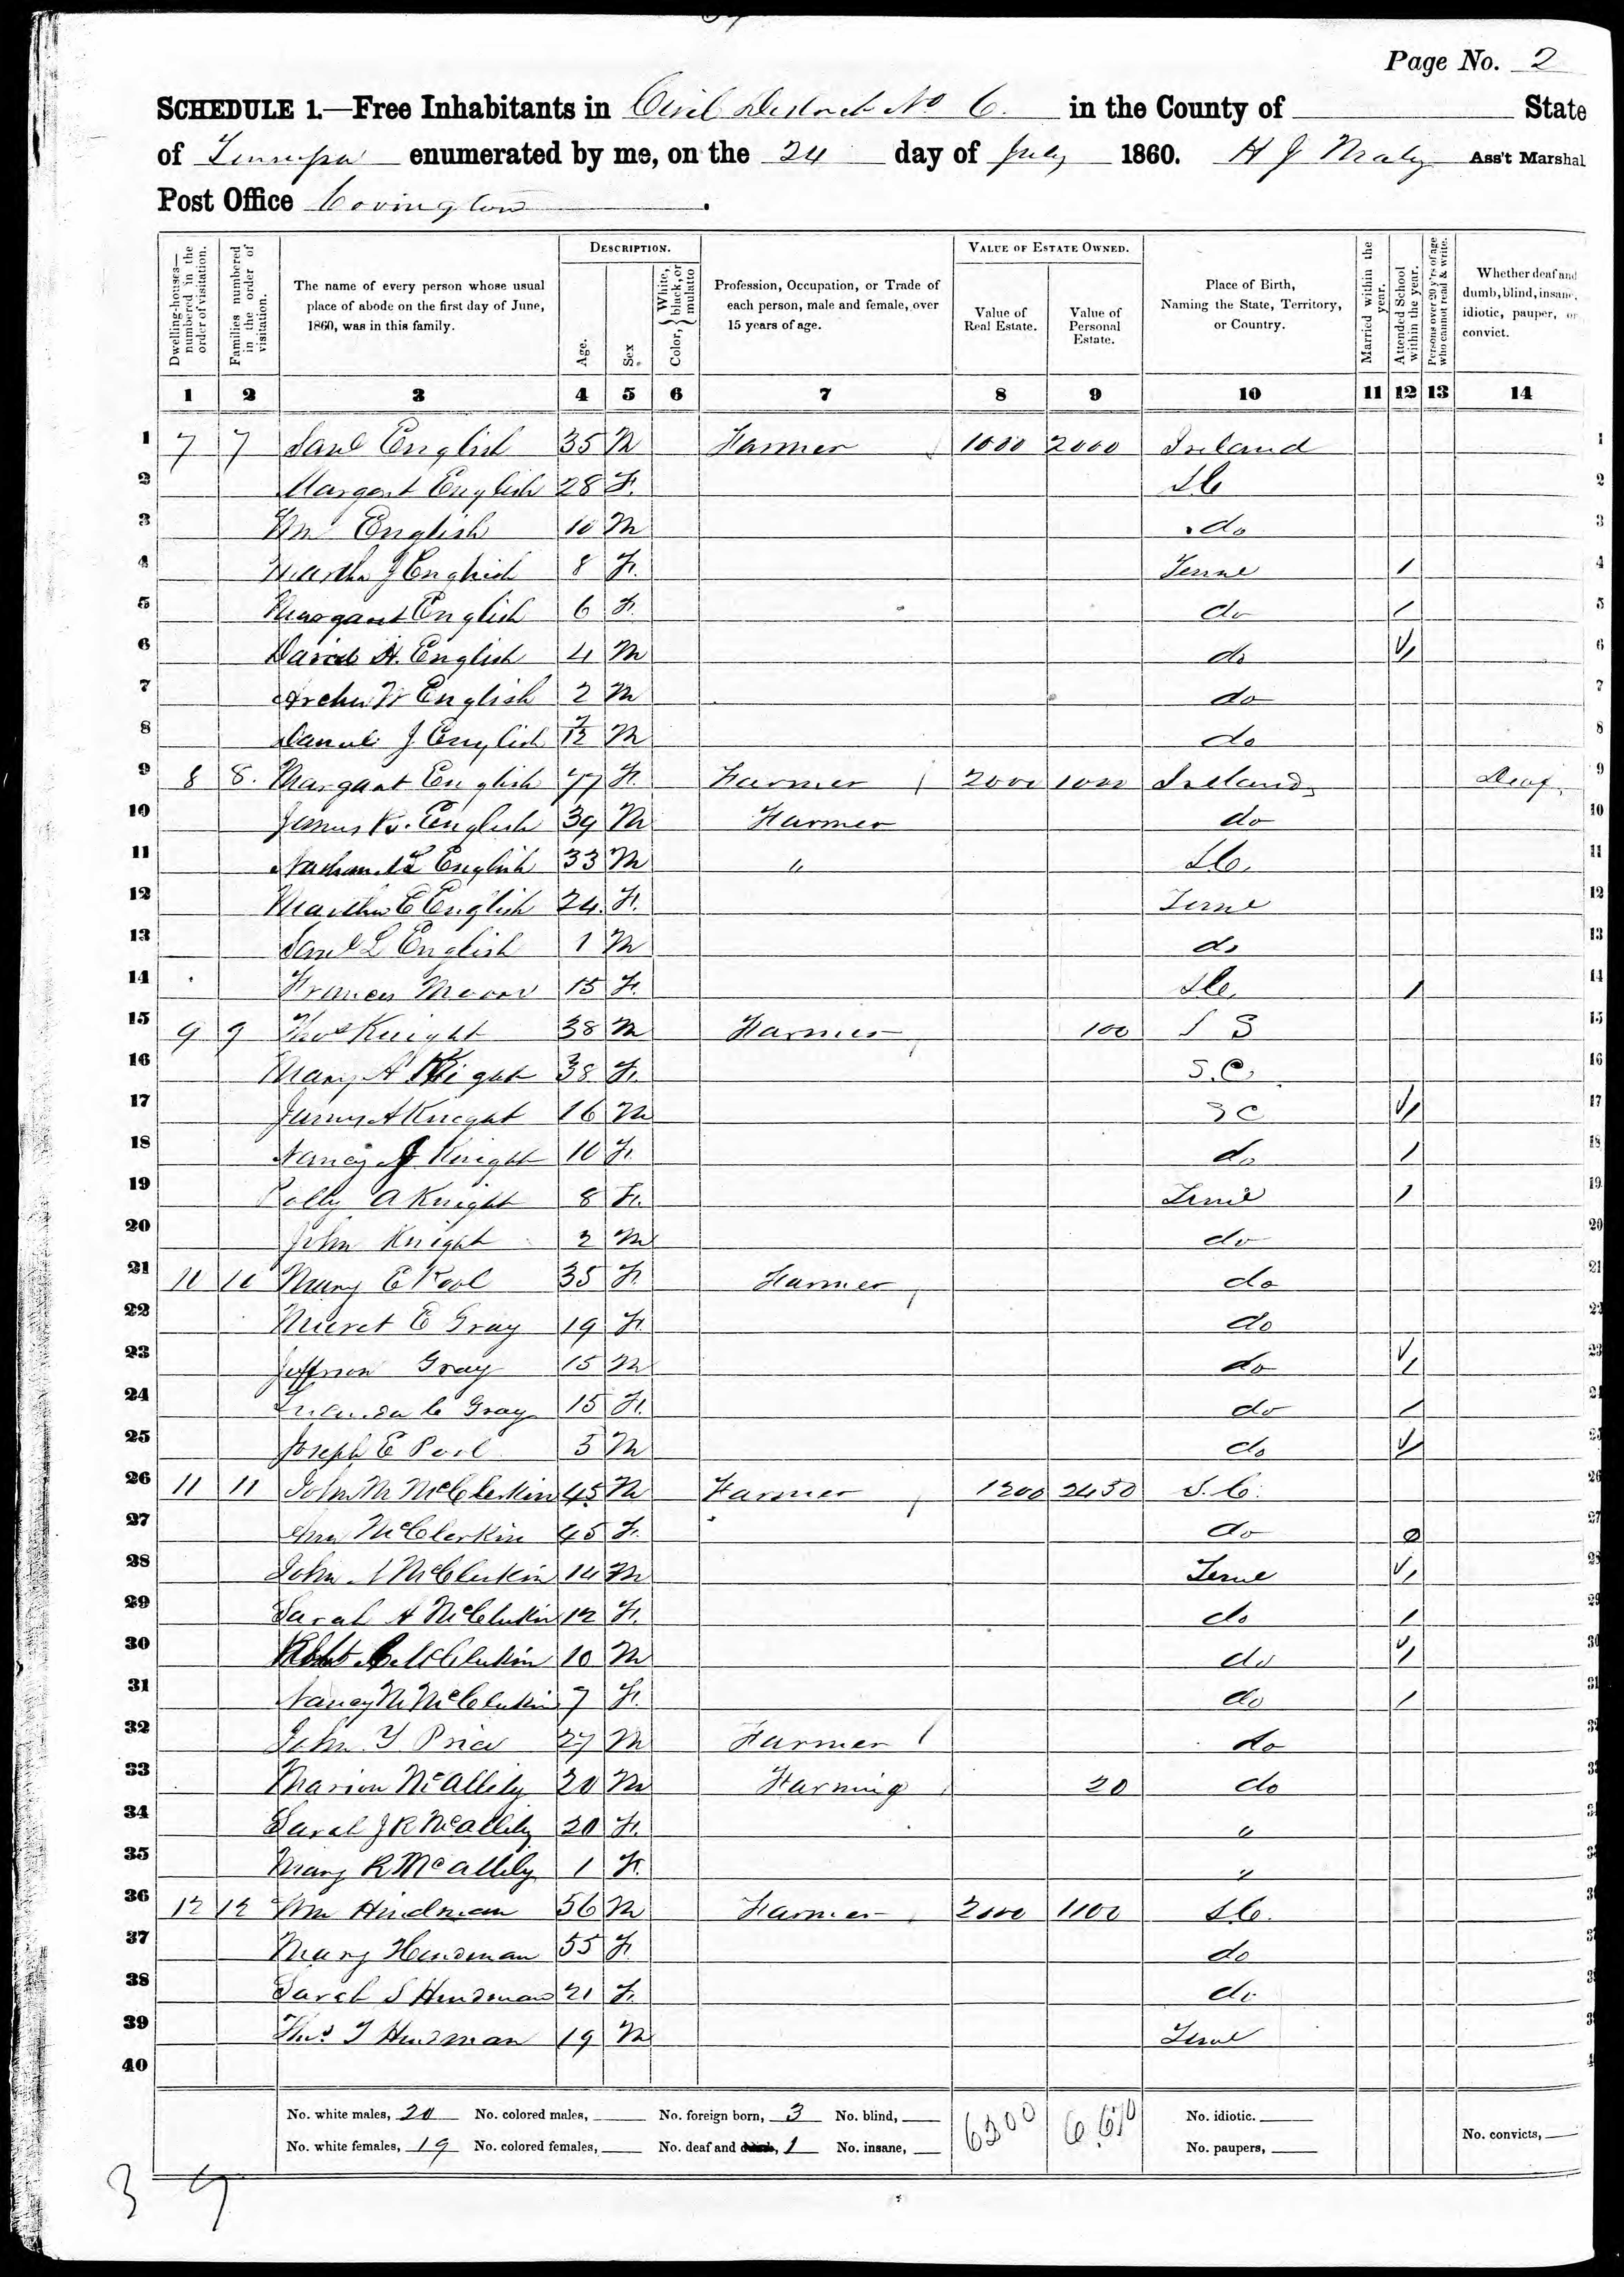 Page No. 2
SCHEDULE 1.—Free Inhabitants in Civil District No 6. in the County of State
of enumerated by me, on the 24 day of July 1860. H J Ass't Marshal
Post Office Covington.
Dwelling-houses—numbered in the order of visitation.
Families numbered in the order of visitation.
The name of every person whose usual place of abode on the first day of June, 1860, was in this family.
DESCRIPTION.
Age.
Sex.
Color, White, black, or mulatto
Profession, Occupation, or Trade of each person, male and female, over 15 years of age.
VALUE OF ESTATE OWNED.
Value of Real Estate.
Value of Personal Estate.
Place of Birth, Naming the State, Territory, or Country.
Married within the year.
Attended School within the year.
Persons over 20 y'rs of age who cannot read & write.
Whether deaf and dumb, blind, insane, idiotic, pauper, or convict.
1 2 3 4 5 6 7 8 9 10 11 12 13 14
1 7 7 Saml English 35 M Farmer 1000 2000 Ireland 1
2 Margart English 28 F. 2
3 Wm English 10 M do 3
4 Martha J English 8 F. Tenne / 4
5 Margant English 6 F. do / 5
6 David H. English 4 M do 6
7 Archer W English 2 M do 7
8 J English M do 8
9 8 8. Margant English 77 F. Farmer 2000 1000 Ireland Deaf. 9
10 James English 39 M Farmer do 10
11 English 33 M " 11
12 Martha E English 24 F. Tenne 12
13 Saml L English 1 M do 13
14 Frances 15 F. / 14
15 9 9 Thos Knight 38 M Farmer 100 15
16 Mary A Knight 38 F. S.C. 16
17 James A Knight 16 M S C 17
18 Nancy J Knight 10 F. do / 18
19 Polly A Knight 8 F. Tenne / 19
20 John Knight 2 M do 20
21 10 10 Mary E Pool 35 F. Farmer do 21
22 E Gray 19 F. do 22
23 Jeffrson Gray 15 M do 23
24 C Gray 15 F. do / 24
25 Joseph E Pool 5 M do 25
26 11 11 John M McClerkin 45 M Farmer 1200 2450 S.C. 26
27 McClerkin 45 F. do 27
28 John McClerkin 14 M Tenne 28
29 Sarah A McClerkin 12 F. do / 29
30 McClerkin 10 M do 30
31 Nancy M McClerkin 7 F. do / 31
32 John Y Price 27 M Farmer do
33 Marion McAllily 20 M Farming 20 do
34 Sarah J R McAllily 20 F. "
35 Mary R McAllily 1 F. "
36 12 12 Wm Hindman 56 M Farmer 2000 1100 S.C.
37 Mary Hindman 55 F. do
38 Sarah S Hindman 21 F. do
39 Thos T Hindman 19 M Tenne
40
No. white males, 20 No. colored males, No. foreign born, 3 No. blind, No. idiotic.
No. white females, 19 No. colored females, No. deaf and dumb, 1 No. insane, No. paupers, No. convicts,